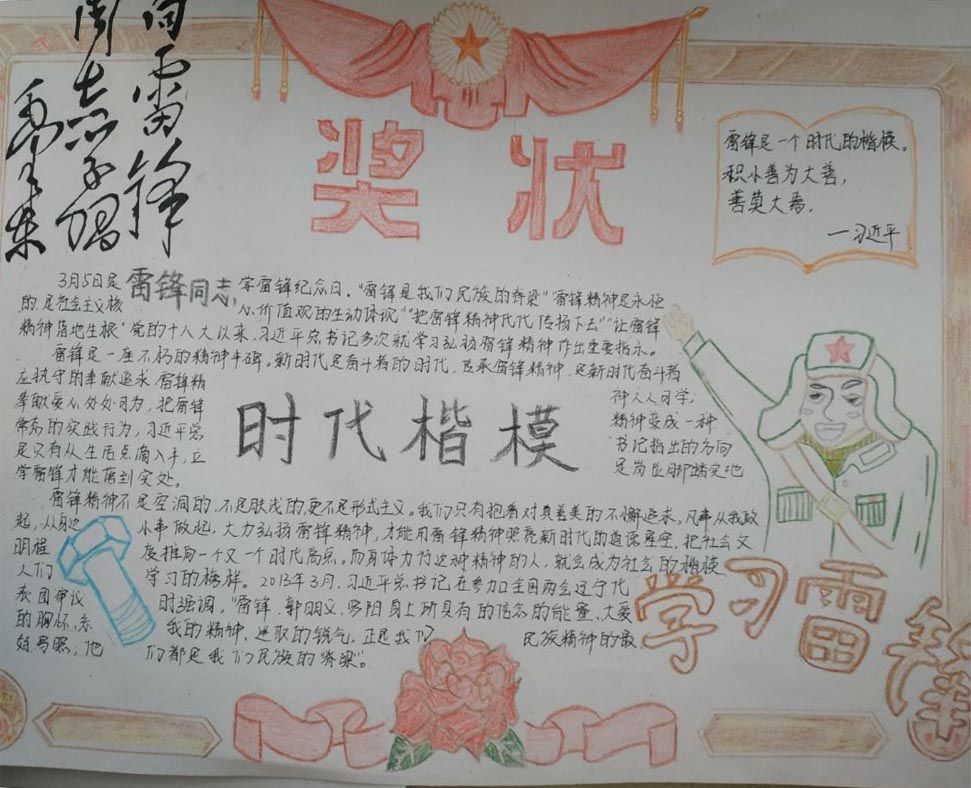 向雷锋
同志学习
毛泽东
奖状
雷锋是一个时代的楷模。
积小善为大善，
善莫大焉.
—习近平
3月5日是雷锋同志,学雷锋纪念日。"雷锋是我们民族的脊梁""雷锋精神是永恒
的,是社会主义核心价值观的生动体现""把雷锋精神代代传扬下去""让雷锋
精神落地生根"党的十八大以来,习近平总书记多次就学习弘扬雷锋精神作出重要指示。
雷锋是一座不朽的精神丰碑。新时代是奋斗者的时代,传承雷锋精神,是新时代奋斗者
应执守的奉献追求,雷锋精神人人可学;
奉献爱心处处可为,把雷锋精神变成一种
常态的实践行为,习近平总书记指出的方向
是只有从生活点滴入手,立足岗位脚踏实地
学雷锋才能落到实处。
时代楷模
雷锋精神不是空洞的,不是肤浅的,更不是形式主义。我们只有抱着对真善美的不懈追求,凡事从我做
起,从身边小事做起,大力弘扬雷锋精神,才能用雷锋精神照亮新时代的道德星空,把社会文
明程度推向一个又一个时代高点。而身体力行这种精神的人,就会成为社会的楷模,
人们学习的榜样。2013年3月,习近平总书记在参加全国两会辽宁代
表团审议时强调,"雷锋、郭明义、罗阳身上所具有的信念的能量、大爱
的胸怀、忘我的精神、进取的锐气,正是我们民族精神的最
好写照;他们都是我们民族的"脊梁"。
学习雷锋